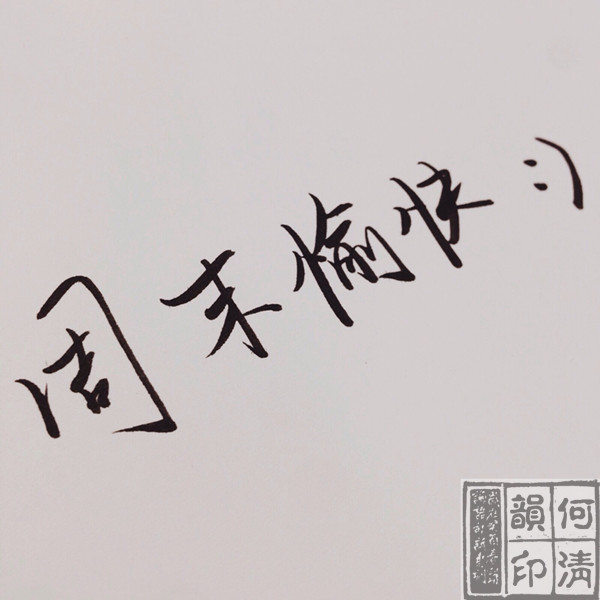 周末愉快 :)
何清韻印